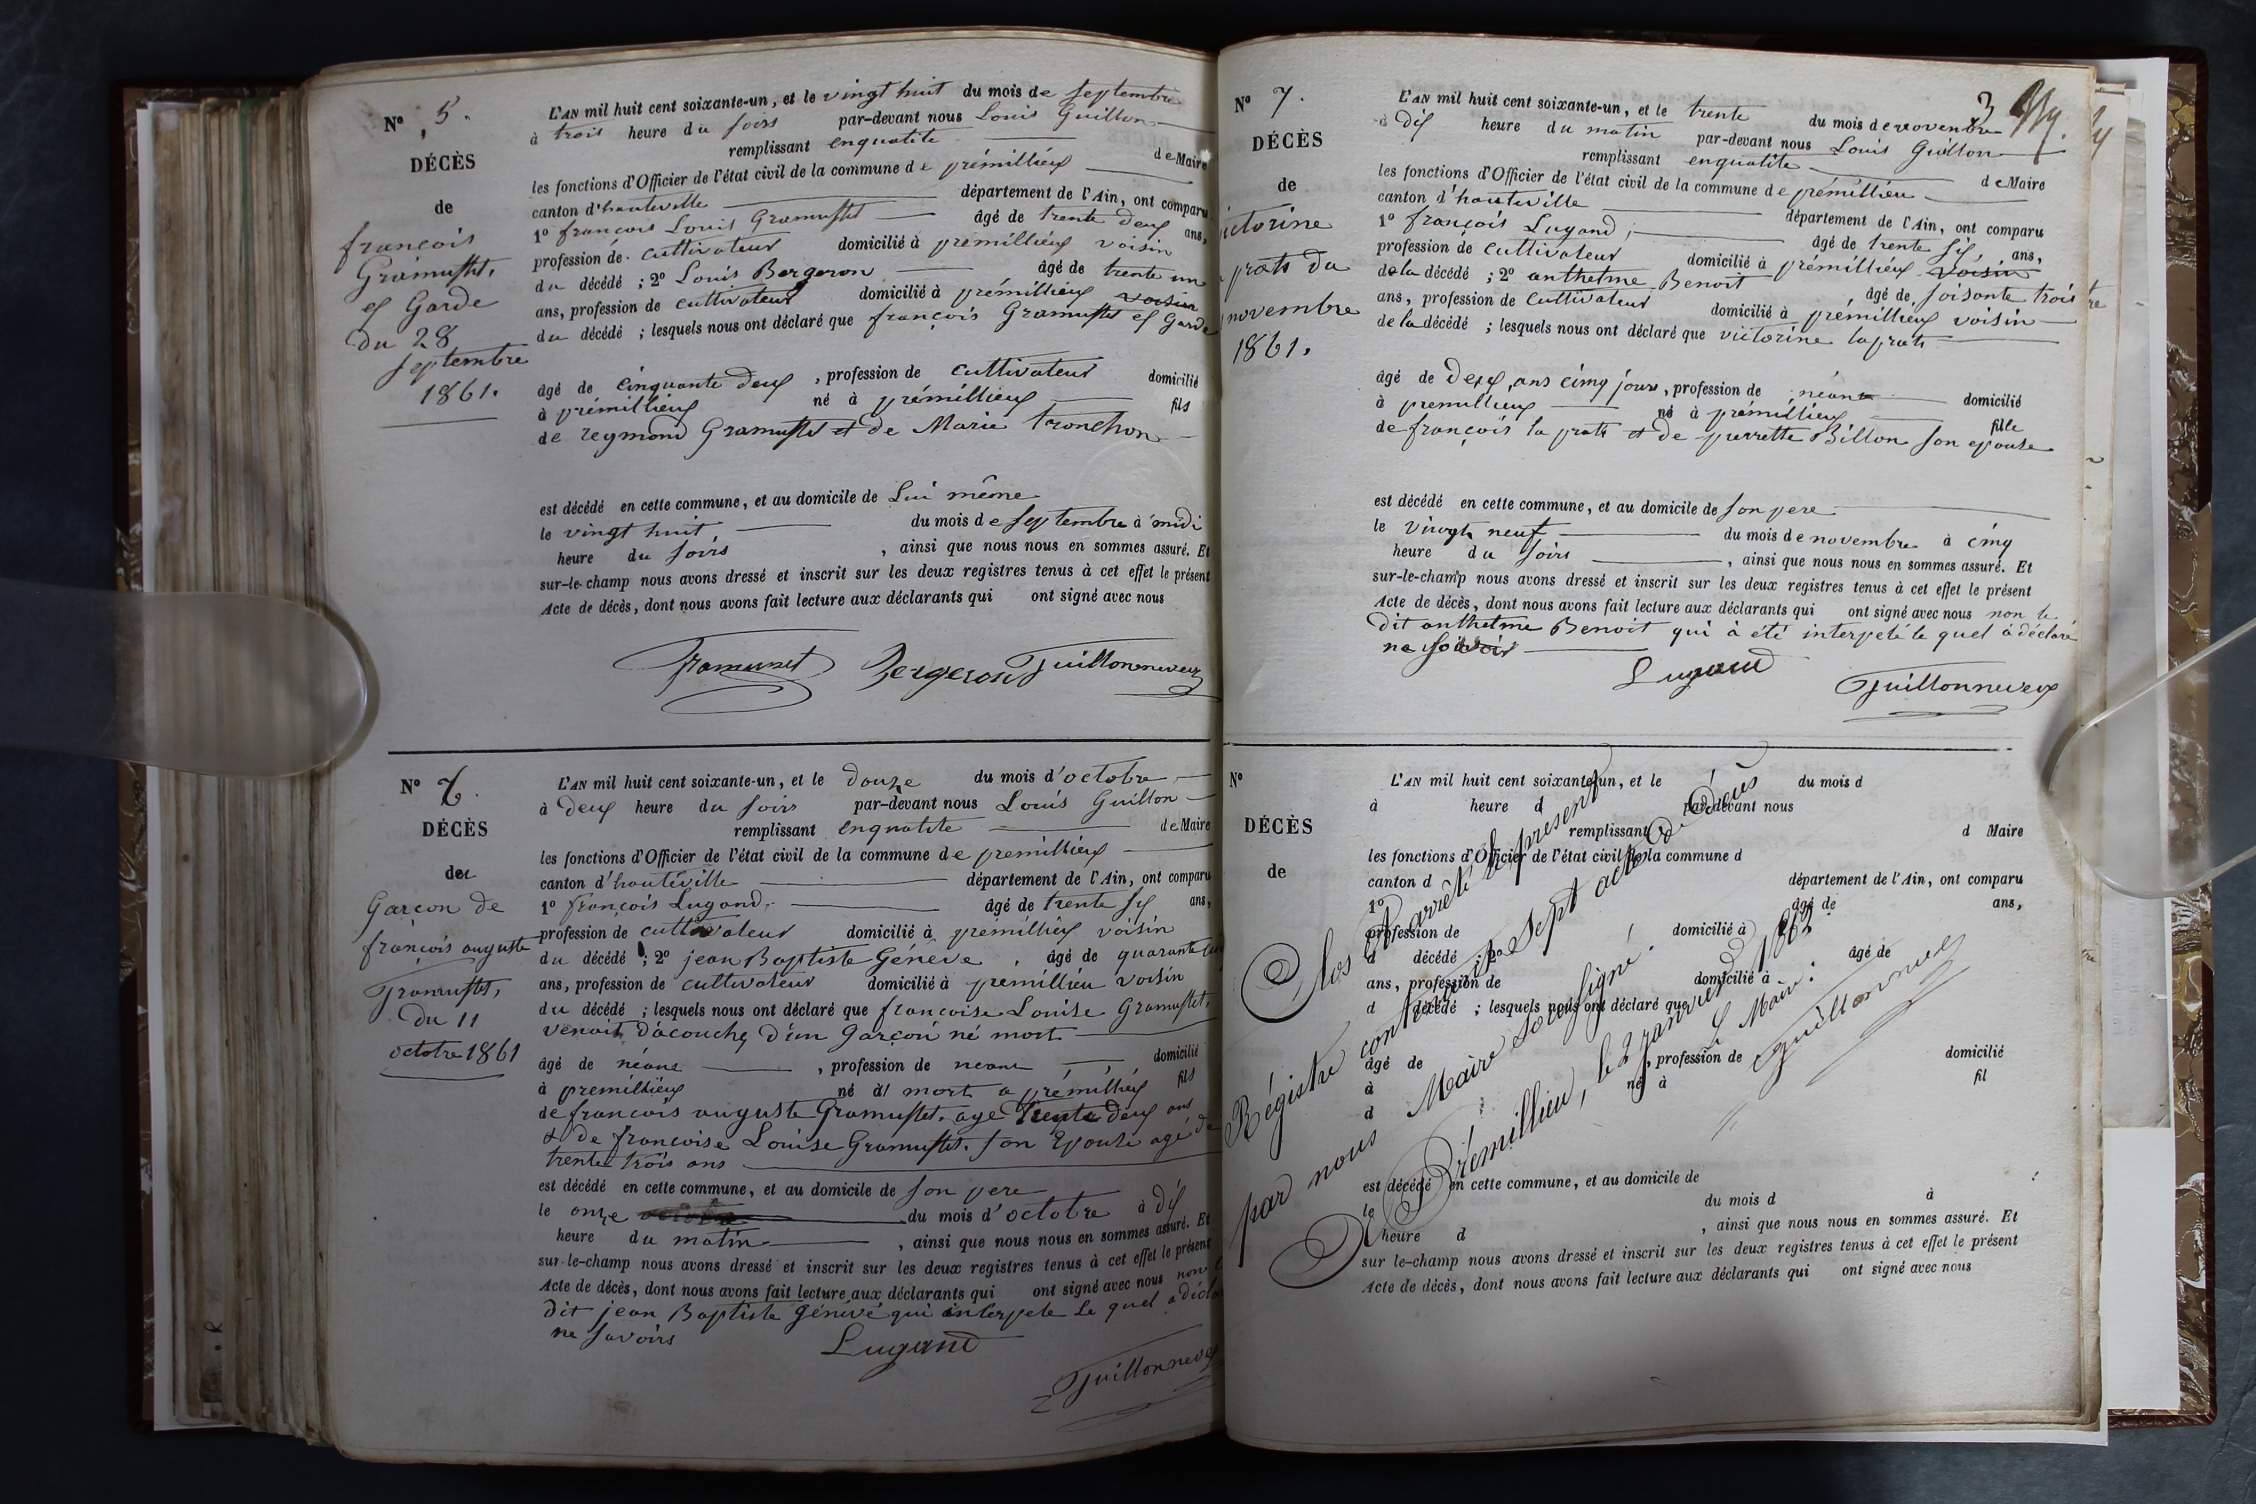 N° 5.
DÉCÈS
de
françois
Gramusset,
ef Garde
du 28
septembre
1861.
L'AN mil huit cent soixante-un, et le vingt huit du mois de septembre
à trois heure du soirs par-devant nous Louis Guillon
remplissant enqualite de Maire
les fonctions d'Officier de l'état civil de la commune de prémillieux
canton d'hauteville département de l'Ain, ont comparu
1° françois Louis Gramusset âgé de trente deux ans,
profession de cultivateur domicilié à prémillieux voisin
du décédé ; 2° Louis Bergeron âgé de trente un
ans, profession de cultivateur domicilié à prémillieux voisin
du décédé ; lesquels nous ont déclaré que françois Gramusset ef Garde
âgé de cinquante deux, profession de cultivateur domicilié
à prémillieux né à prémillieux fils
de reymond Gramusset et de Marie tronchon
est décédé en cette commune, et au domicile de Lui même
le vingt huit du mois de septembre à midi
heure du soirs, ainsi que nous nous en sommes assuré. Et
sur-le-champ nous avons dressé et inscrit sur les deux registres tenus à cet effet le présent
Acte de décès, dont nous avons fait lecture aux déclarants qui ont signé avec nous
Gramusset Bergeron Guillonneveux
N° 6.
DÉCÈS
de
Garçon de
françois auguste
Gramusset,
du 11
octobre 1861
L'AN mil huit cent soixante-un, et le douze du mois d'octobre
à deux heure du soirs par-devant nous Louis Guillon
remplissant enqualite de Maire
les fonctions d'Officier de l'état civil de la commune de premillieux
canton d'hauteville département de l'Ain, ont comparu
1° françois Lugand, âgé de trente six ans,
profession de cultivateur domicilié à premillieux voisin
du décédé ; 2° jean Baptiste Généve, âgé de quarante
ans, profession de cultivateur domicilié à premillieu voisin
du décédé ; lesquels nous ont déclaré que francoise Louise Gramusset,
venait d'acouché d'un garçon né mort
âgé de néant, profession de neant domicilié
à premillieux né à mort a prémillieux fils
de francois auguste Gramusset, age Trente deux ans
& de francoise Louise Gramusset, son Epouse agé de
trente trois ans
est décédé en cette commune, et au domicile de son pere
le onze du mois d'octobre à dix
heure du matin, ainsi que nous nous en sommes assuré. Et
sur-le-champ nous avons dressé et inscrit sur les deux registres tenus à cet effet le présent
Acte de décès, dont nous avons fait lecture aux déclarants qui ont signé avec nous non
dit jean Baptiste Généve qui interpete Le quel a
ne savoirs
Lugand
Guillonneveux
N° 7.
3
DÉCÈS
de
ictorine
prats du
novembre
1861.
L'AN mil huit cent soixante-un, et le trente du mois de novembre
à dix heure du matin par-devant nous Louis Guillon
remplissant enqualite de Maire
les fonctions d'Officier de l'état civil de la commune de prémillieu
canton d'hauteville département de l'Ain, ont comparu
1° françois Lugand, âgé de trente six ans,
profession de cultivateur domicilié à prémillieux voisin
de la décédé ; 2° anthelme Benoit âgé de soisante trois
ans, profession de cultivateur domicilié à prémillieux voisin
de la décédé ; lesquels nous ont déclaré que victorine laprats
âgé de deux ans cinq jours, profession de néant domicilié
à premillieux né à prémillieux fille
de françois la prats et de pierrette Billon son epouse
est décédé en cette commune, et au domicile de son pere
le vingt neuf du mois de novembre à cinq
heure du soirs, ainsi que nous nous en sommes assuré. Et
sur-le-champ nous avons dressé et inscrit sur les deux registres tenus à cet effet le présent
Acte de décès, dont nous avons fait lecture aux déclarants qui ont signé avec nous non le
dit anthelme Benoit qui à été interpelé le quel à déclaré
ne savoir
Lugand
Guillonneveux
N°
DÉCÈS
de
L'AN mil huit cent soixante-un, et le du mois d
à heure d par-devant nous
remplissant d Maire
les fonctions d'Officier de l'état civil de la commune d
canton d département de l'Ain, ont comparu
1° âgé de ans,
profession de domicilié à
d décédé ; 2° âgé de
ans, profession de domicilié à
d décédé ; lesquels nous ont déclaré que
âgé de , profession de domicilié
à né à fil
d
est décédé en cette commune, et au domicile de
le du mois d à
heure d , ainsi que nous nous en sommes assuré. Et
sur le-champ nous avons dressé et inscrit sur les deux registres tenus à cet effet le présent
Acte de décès, dont nous avons fait lecture aux déclarants qui ont signé avec nous
Clos et arrêté le présent
Régistre contenant Sept actes de décès
par nous Maire soussigné.
Prémillieu, le 2 janvier 1862
Le Maire :
Guillonneveux